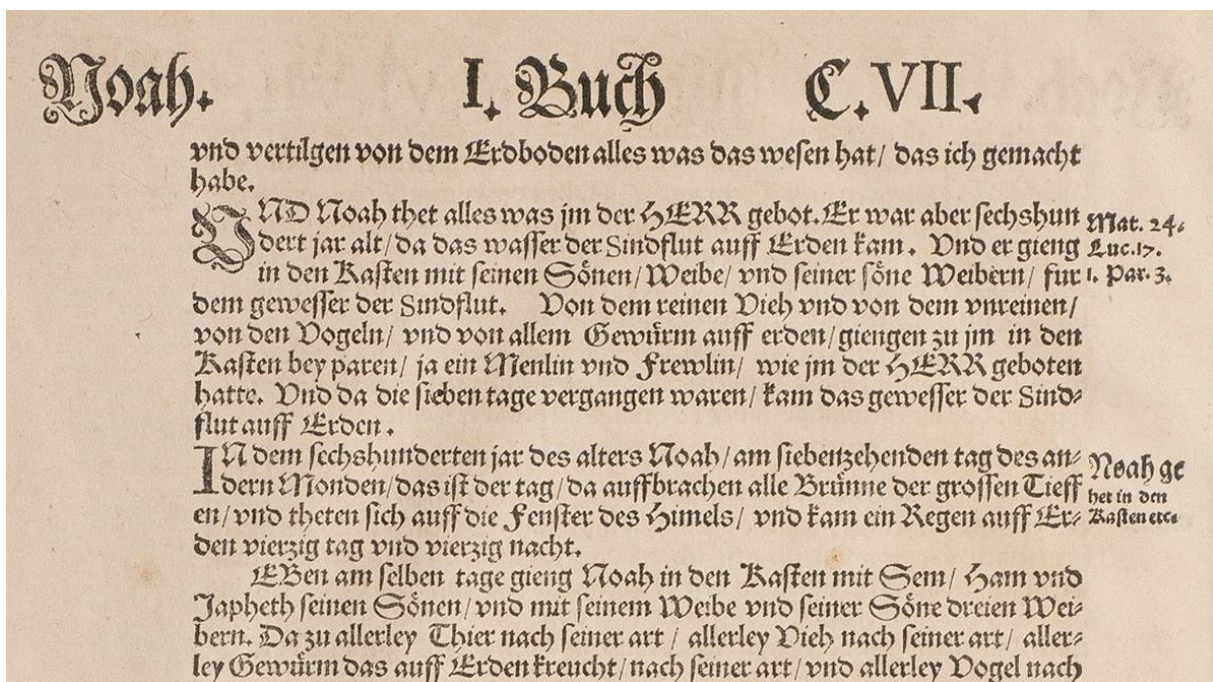 Noah. I. Buch C. VII.
vnd vertilgen von dem Erdboden alles was das wesen hat/ das ich gemacht
habe.
VND Noah thet alles was jm der HERR gebot. Er war aber sechshun
dert jar alt/ da das wasser der Sindflut auff Erden kam. Vnd er gieng
in den Kasten mit seinen Sönen/ Weibe/ vnd seiner söne Weibern/ fur
dem gewesser der Sindflut. Von dem reinen Vieh vnd von dem vnreinen/
von den Vogeln/ vnd von allem Gewürm auff erden/ giengen zu jm in den
Kasten bey paren/ ja ein Menlin vnd Frewlin/ wie jm der HERR geboten
hatte. Vnd da die sieben tage vergangen waren/ kam das gewesser der Sind-
flut auff Erden.
IN dem sechshunderten jar des alters Noah/ am siebenzehenden tag des an-
dern Monden/ das ist der tag/ da auffbrachen alle Brünne der grossen Tieff
en/ vnd theten sich auff die Fenster des Himels/ vnd kam ein Regen auff Er-
den vierzig tag vnd vierzig nacht.
EBen am selben tage gieng Noah in den Kasten mit Sem/ Ham vnd
Japheth seinen Sönen/ vnd mit seinem Weibe vnd seiner Söne dreien Wei-
bern. Da zu allerley Thier nach seiner art/ allerley Vieh nach seiner art/ aller-
ley Gewürm das auff Erden kreucht/ nach seiner art/ vnd allerley Vogel nach
Mat. 24.
Luc. 17.
1. Par. 3.
Noah ge
het in den
Kasten etc.